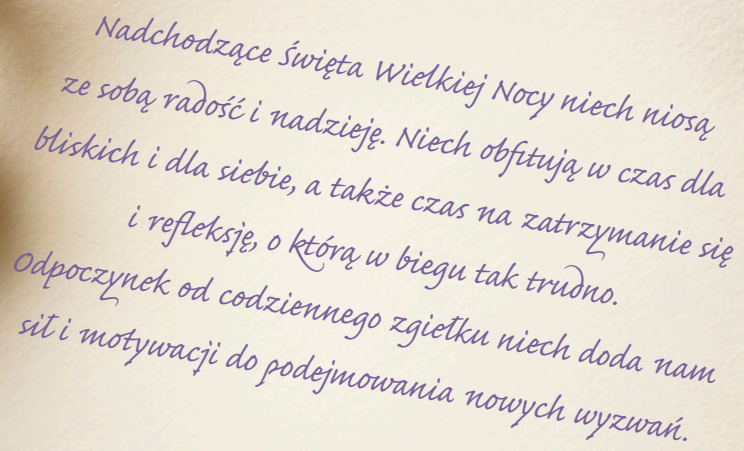 Nadchodzące Święta Wielkiej Nocy niech niosą
ze sobą radość i nadzieję. Niech obfitują w czas dla
bliskich i dla siebie, a także czas na zatrzymanie się
i refleksję, o którą w biegu tak trudno.
Odpoczynek od codziennego zgiełku niech doda nam
sił i motywacji do podejmowania nowych wyzwań.